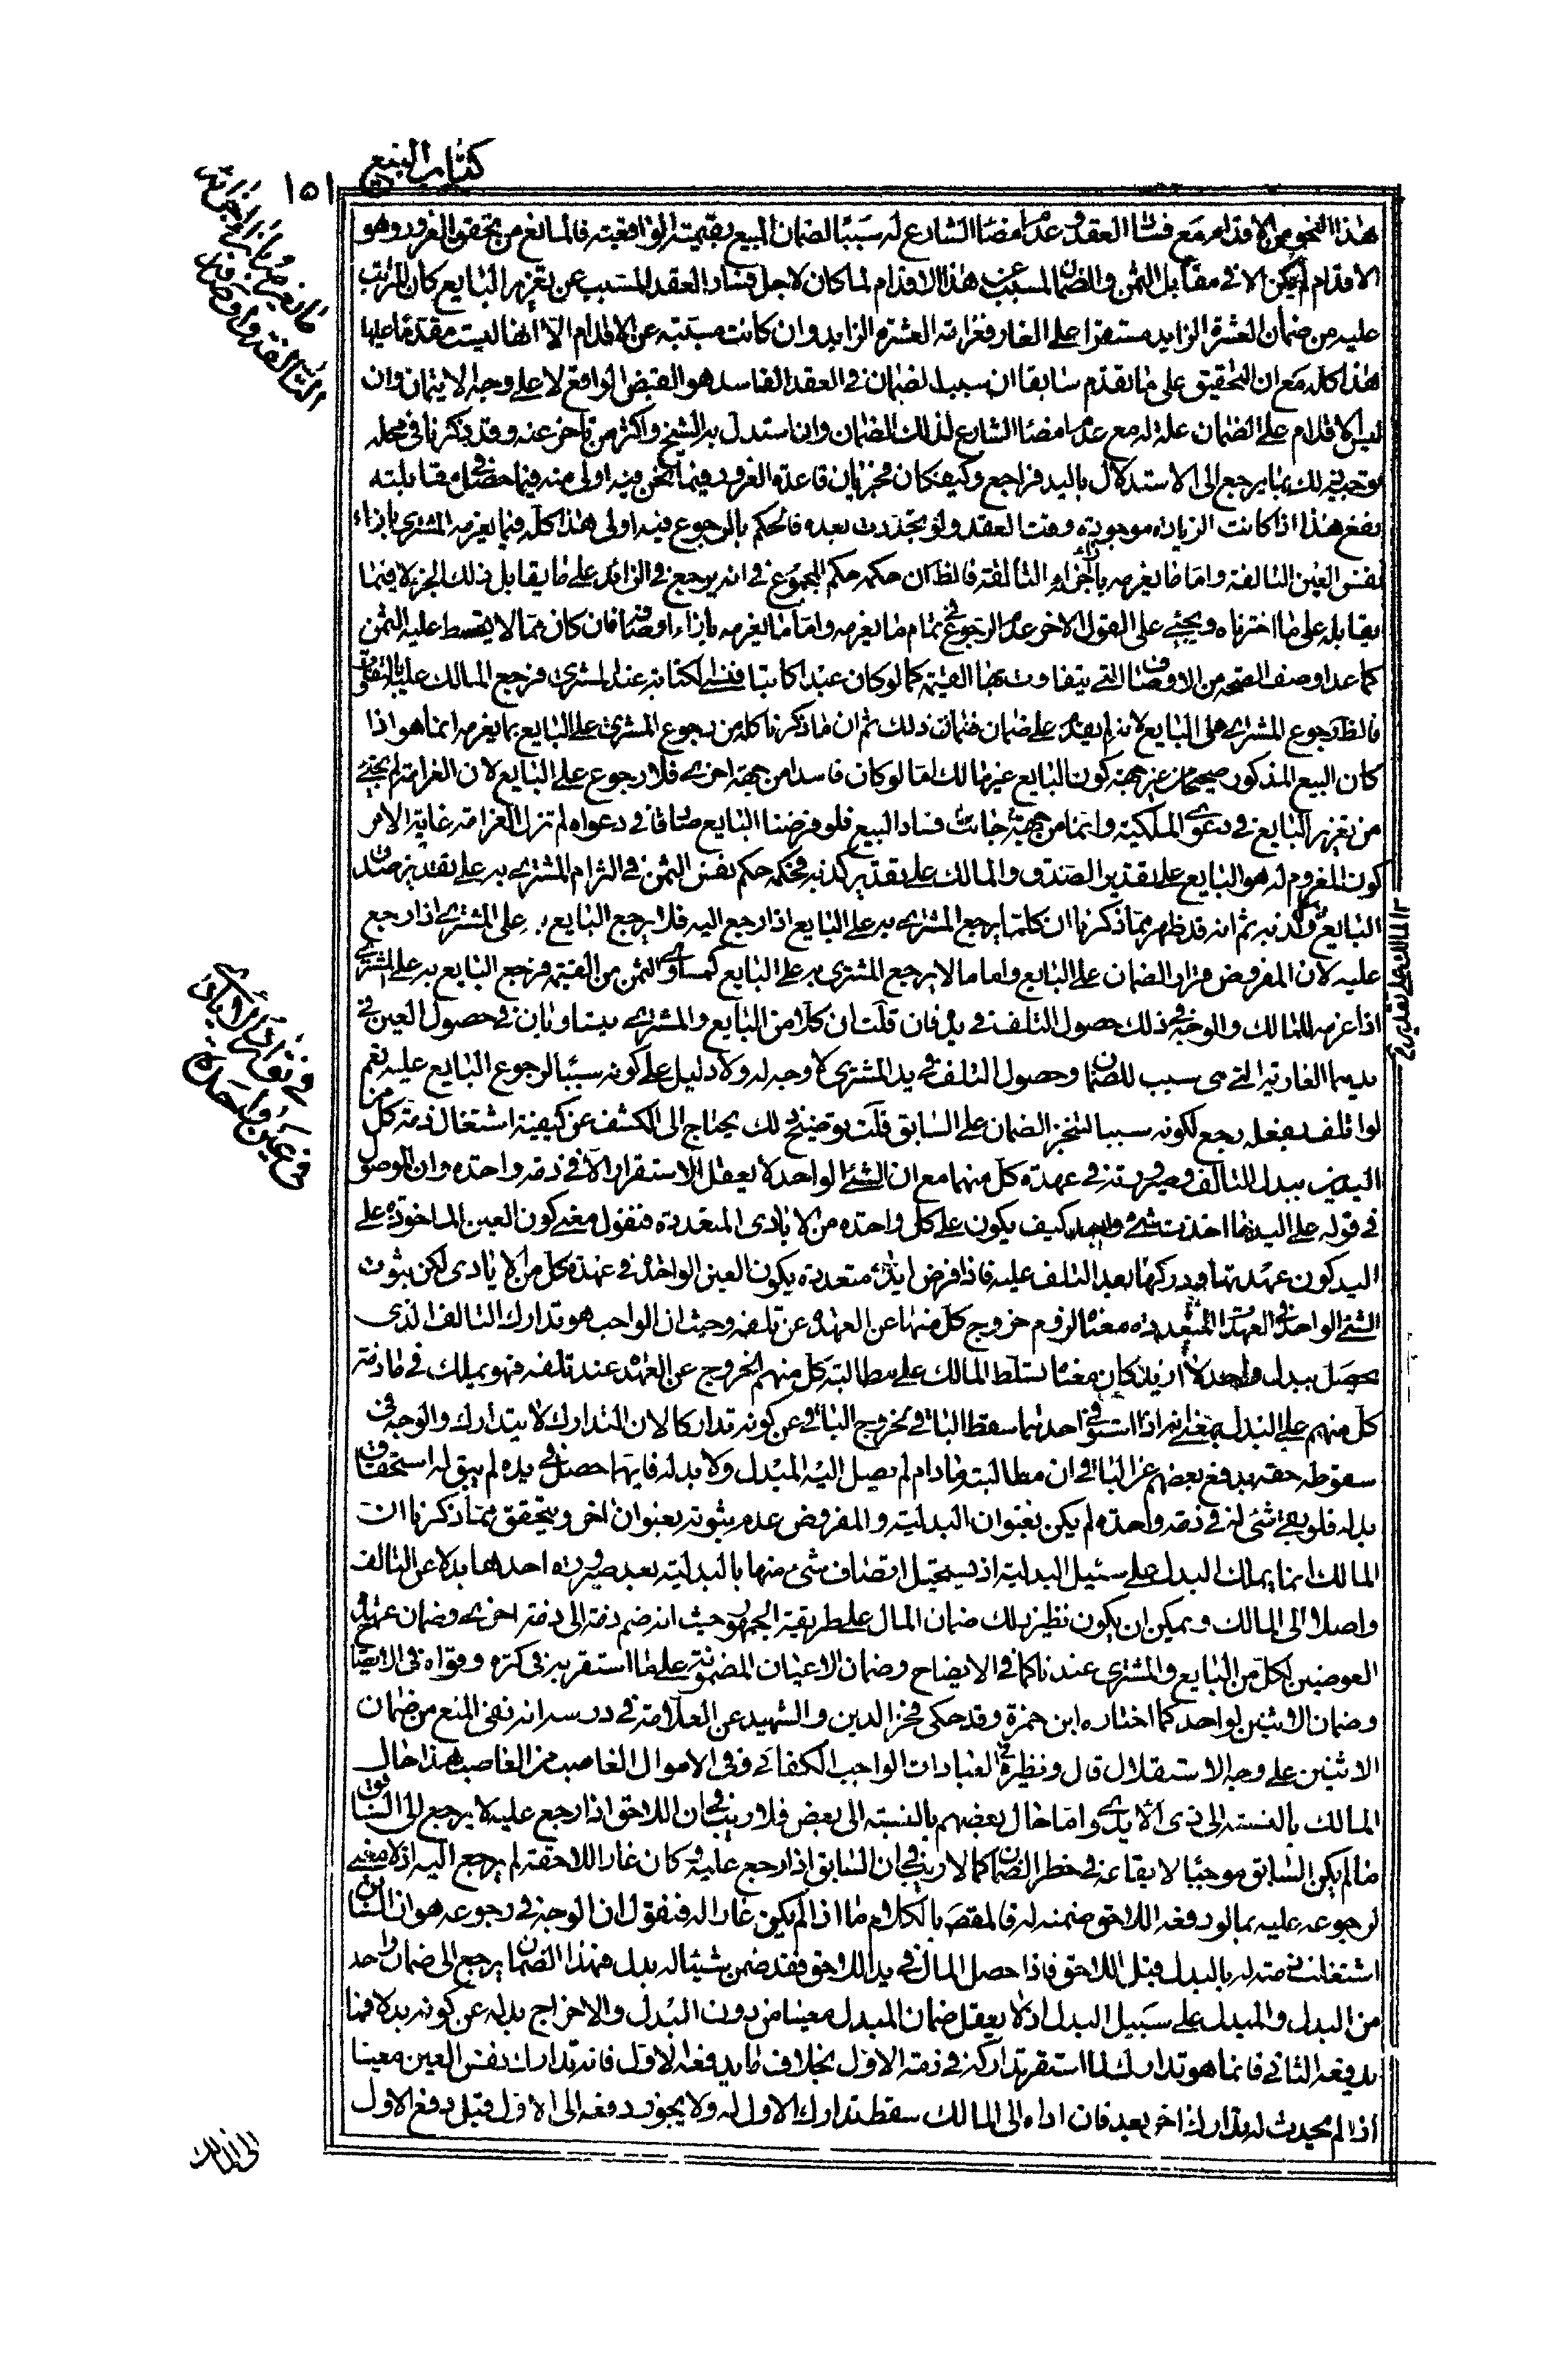 كتاب البيع
١٥١
هذا النحو من الاقدام مع فساد العقد وعدم امضاء الشارع له سببا لضمان المبيع بقيمته الواقعية فالمانع من تحقق الغرور وهو
الاقدام لم يكن الا في مقابل الثمن والضمان المسبب عن هذا الاقدام لما كان لاجل فساد العقد المسبب عن تغرير البايع كان المترتب
عليه من ضمان العشرة الزايد مستقرا على الغار فغرامة العشرة الزايد وان كانت مسببة عن الاقدام الا انها ليست مقدما عليها
هذا كله مع ان التحقيق على ما تقدم سابقا ان سبب الضمان في العقد الفاسد هو القبض الواقع لا على وجه الايتمان وان
ليس الاقدام على الضمان علة له مع عدم امضاء الشارع لذلك الضمان وان استدل به الشيخ واكثر من تاخر عنه وقد ذكرنا في محله
توجيه ذلك بما يرجع الى الاستدلال باليد فراجع وكيف كان فجريان قاعدة الغرور فيما نحن فيه اولى منه فيما حصل في مقابلته
نفع هذا اذا كانت الزيادة موجودة وقت العقد ولو تجددت بعده فالحكم بالرجوع فيه اولى هذا كله فيما يغرمه المشتري بازاء
نفس العين التالفة واما ما يغرمه بازاء اجزائه التالفة فالظ ان حكمه حكم المجموع في انه يرجع في الزائد على ما يقابل ذلك الجزء لا فيما
يقابله على ما اخترناه ويجئ على القول الاخر عدم الرجوع في تمام ما يغرمه واما ما يغرمه بازاء اوصافه فان كان مما لا يقسط عليه الثمن
كما عدا وصف الصحة من الاوصاف التي يتفاوت بها القيمة كما لو كان عبدا كاتبا فنسي الكتابة عند المشتري فرجع المالك عليه بالتفاوت
فالظ رجوع المشتري على البايع لانه لم يقدم على ضمان ذلك ثم ان ما ذكرنا كله من رجوع المشتري على البايع بما يغرمه انما هو اذا
كان البيع المذكور صحيحا من غير جهة كون البايع غير مالك اما لو كان فاسدا من جهة اخرى فلا رجوع على البايع لان الغرامة لم تجئ
من تغرير البايع في دعوى الملكية وانما جائت من جهة فساد البيع فلو فرضنا البايع صادقا في دعواه لم تزل الغرامة غاية الامر
كون المغروم له هو البايع على تقدير الصدق والمالك على تقدير كذبه فحكمه حكم نفس الثمن في التزام المشتري به على تقديري صدق
البايع وكذبه ثم انه قد ظهر مما ذكرنا ان كلما يرجع المشتري به على البايع اذا رجع اليه فلا يرجع البايع به على المشتري اذا رجع
عليه لان المفروض قرار الضمان على البايع واما ما لا يرجع المشتري به على البايع كمساوي الثمن من القيمة فيرجع البايع به على المشتري
اذا غرمه للمالك والوجه في ذلك حصول التلف في يده فان قلت ان كلا من البايع والمشتري يتساويان في حصول العين في
يدهما العادية التي هي سبب للضمان وحصول التلف في يد المشتري لا وجه له ولا دليل على كونه سببا لرجوع البايع عليه نعم
لو اتلف بفعله رجع لكونه سببا لتنجز الضمان على السابق قلت توضيح ذلك يحتاج الى الكشف عن كيفية اشتغال ذمة كل من
اليدين ببدل التالف وصيرورته في عهدة كل منهما مع ان الشئ الواحد لا يعقل الاستقرار الا في ذمة واحدة وان الموصول
في قوله على اليد ما اخذت شئ واحد كيف يكون على كل واحدة من الايادي المتعددة فنقول معنى كون العين الماخوذة على
اليد كون عهدتها ودركها بعد التلف عليه فاذا فرض ايد متعددة يكون العين الواحدة في عهدة كل من الايادي لكن ثبوت
الشئ الواحد في العهدات المتعددة معناه لزوم خروج كل منها عن العهدة عن تلفه وحيث ان الواجب هو تدارك التالف الذي
يحصل ببدل واحد لا ازيد كان معناه تسلط المالك على مطالبة كل منهم الخروج عن العهدة عند تلفه فهو يملك في ما ذمة
كل منهم على البدل بمعنى انه اذا استوفى احدهما سقط الباقي لخروج الباقي عن كونه تداركا لان المتدارك لا يتدارك والوجه في
سقوط حقه بدفع بعضهم عن الباقي ان مطالبته ما دام لم يصل اليه المبدل ولا بدله فايهما حصل في يده لم يبق له استحقاق
بدله فلو بقي شئ له في ذمة واحدة لم يكن بعنوان البدلية والمفروض عدم ثبوته بعنوان اخر ويتحقق مما ذكرنا ان
المالك انما يملك البدل على سبيل البدلية اذ يستحيل اتصاف شئ منها بالبدلية بعد صيرورة احدها بدلا عن التالف
واصلا الى المالك ويمكن ان يكون نظير ذلك ضمان المال على طريقة الجمهور حيث انه ضم ذمة الى ذمة اخرى وضمان عهدة
العوضين لكل من البايع والمشتري عندنا كما في الايضاح وضمان الاعيان المضمونة على ما استقربه في كره وقواه في الايضاح
وضمان الاثنين لواحد كما اختاره ابن حمزة وقد حكى فخر الدين والشهيد عن العلامة في درسه انه نفى المنع من ضمان
الاثنين على وجه الاستقلال قال ونظيره في العبادات الواجب الكفائي وفي الاموال الغاصب من الغاصب هذا حال
المالك بالنسبة الى ذوي الايدي واما حال بعضهم بالنسبة الى بعض فلا ريب في ان اللاحق اذا رجع عليه لا يرجع الى السابق
ما لم يكن السابق موجبا لايقاعه في خطر الضمان كما لا ريب في ان السابق اذا رجع عليه وكان غارا للاحقه لم يرجع اليه اذ لا معنى
لرجوعه عليه بما لو دفعه اللاحق ضمنه له فالمقصد بالكلام ما اذا لم يكن غارا له فنقول ان الوجه في رجوعه هو ان السابق
اشتغلت ذمته له بالبدل قبل اللاحق فاذا حصل المال في يد اللاحق فقد ضمن شيئا له بدل فهذا الضمان يرجع الى ضمان واحد
من البدل والمبدل على سبيل البدل اذ لا يعقل ضمان المبدل معينا من دون البدل والا خرج بدله عن كونه بدلا فما
يدفعه الثاني فانما هو تدارك لما استقر تداركه في ذمة الاول بخلاف ما يدفعه الاول فانه تدارك نفس العين معينا
اذا لم يحدث له تدارك اخر بعد فان اداه الى المالك سقط تدارك الاول له ولا يجوز دفعه الى الاول قبل دفع الاول
الى المالك